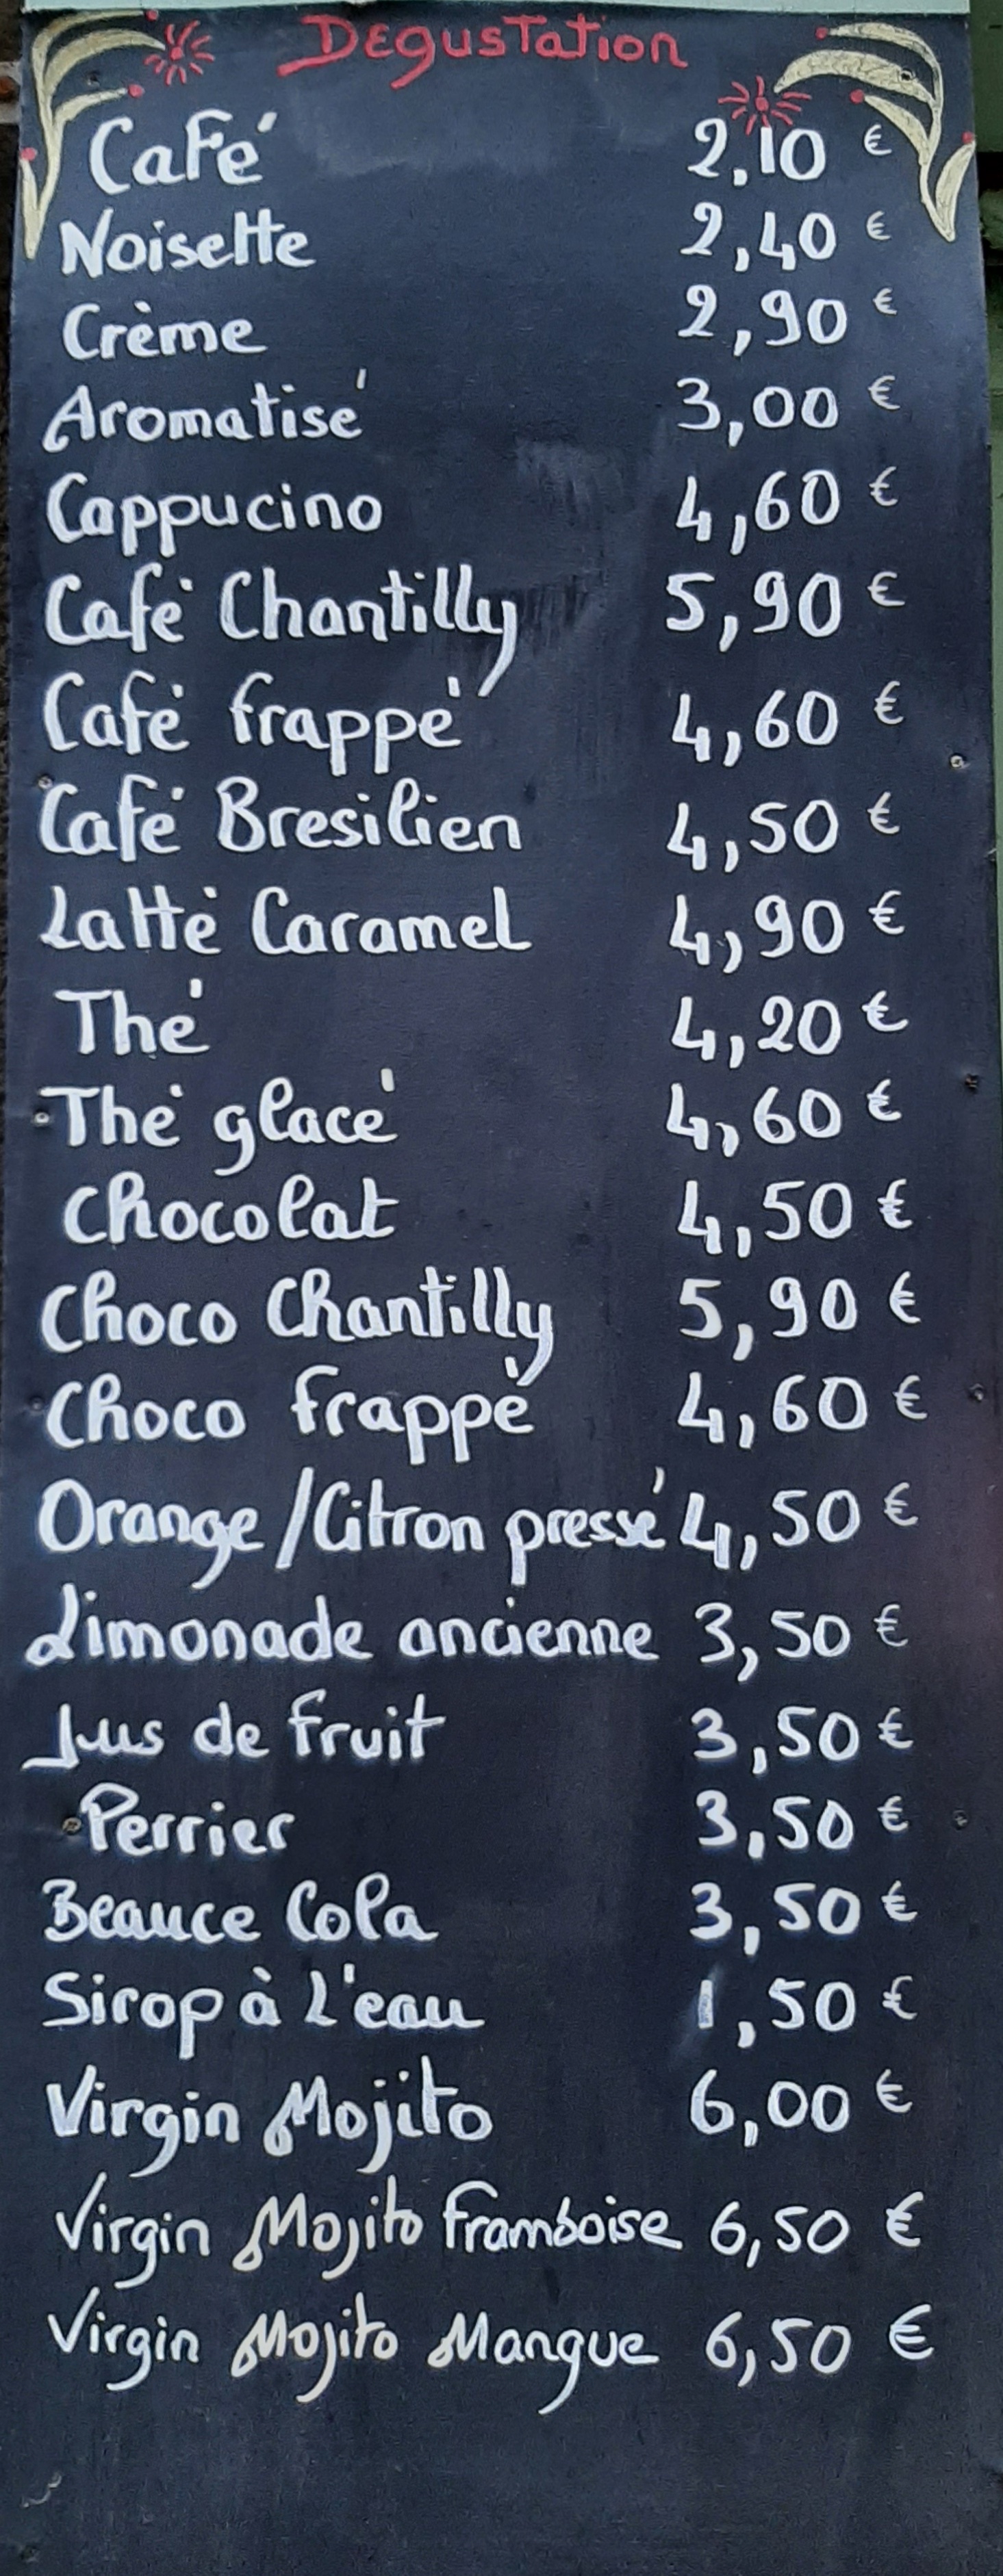 Degustation
Café 2,10 €
Noisette 2,40 €
Crème 2,90 €
Aromatisé 3,00 €
Cappucino 4,60 €
Café Chantilly 5,90 €
Café frappé 4,60 €
Café Bresilien 4,50 €
Latté Caramel 4,90 €
Thé 4,20 €
Thé glacé 4,60 €
Chocolat 4,50 €
Choco Chantilly 5,90 €
Choco frappé 4,60 €
Orange/Citron pressé 4,50 €
Limonade ancienne 3,50 €
Jus de fruit 3,50 €
Perrier 3,50 €
Beauce Cola 3,50 €
Sirop à L'eau 1,50 €
Virgin Mojito 6,00 €
Virgin Mojito framboise 6,50 €
Virgin Mojito Mangue 6,50 €